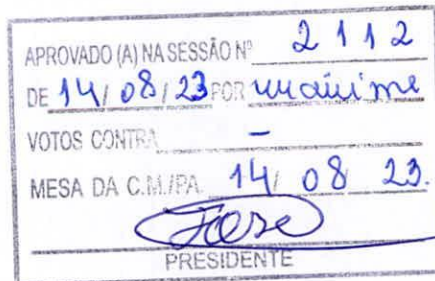 APROVADO (A) NA SESSÃO Nº 2112
DE 14/08/23 POR unânime
VOTOS CONTRA -
MESA DA C.M./PA. 14/08 23.
PRESIDENTE